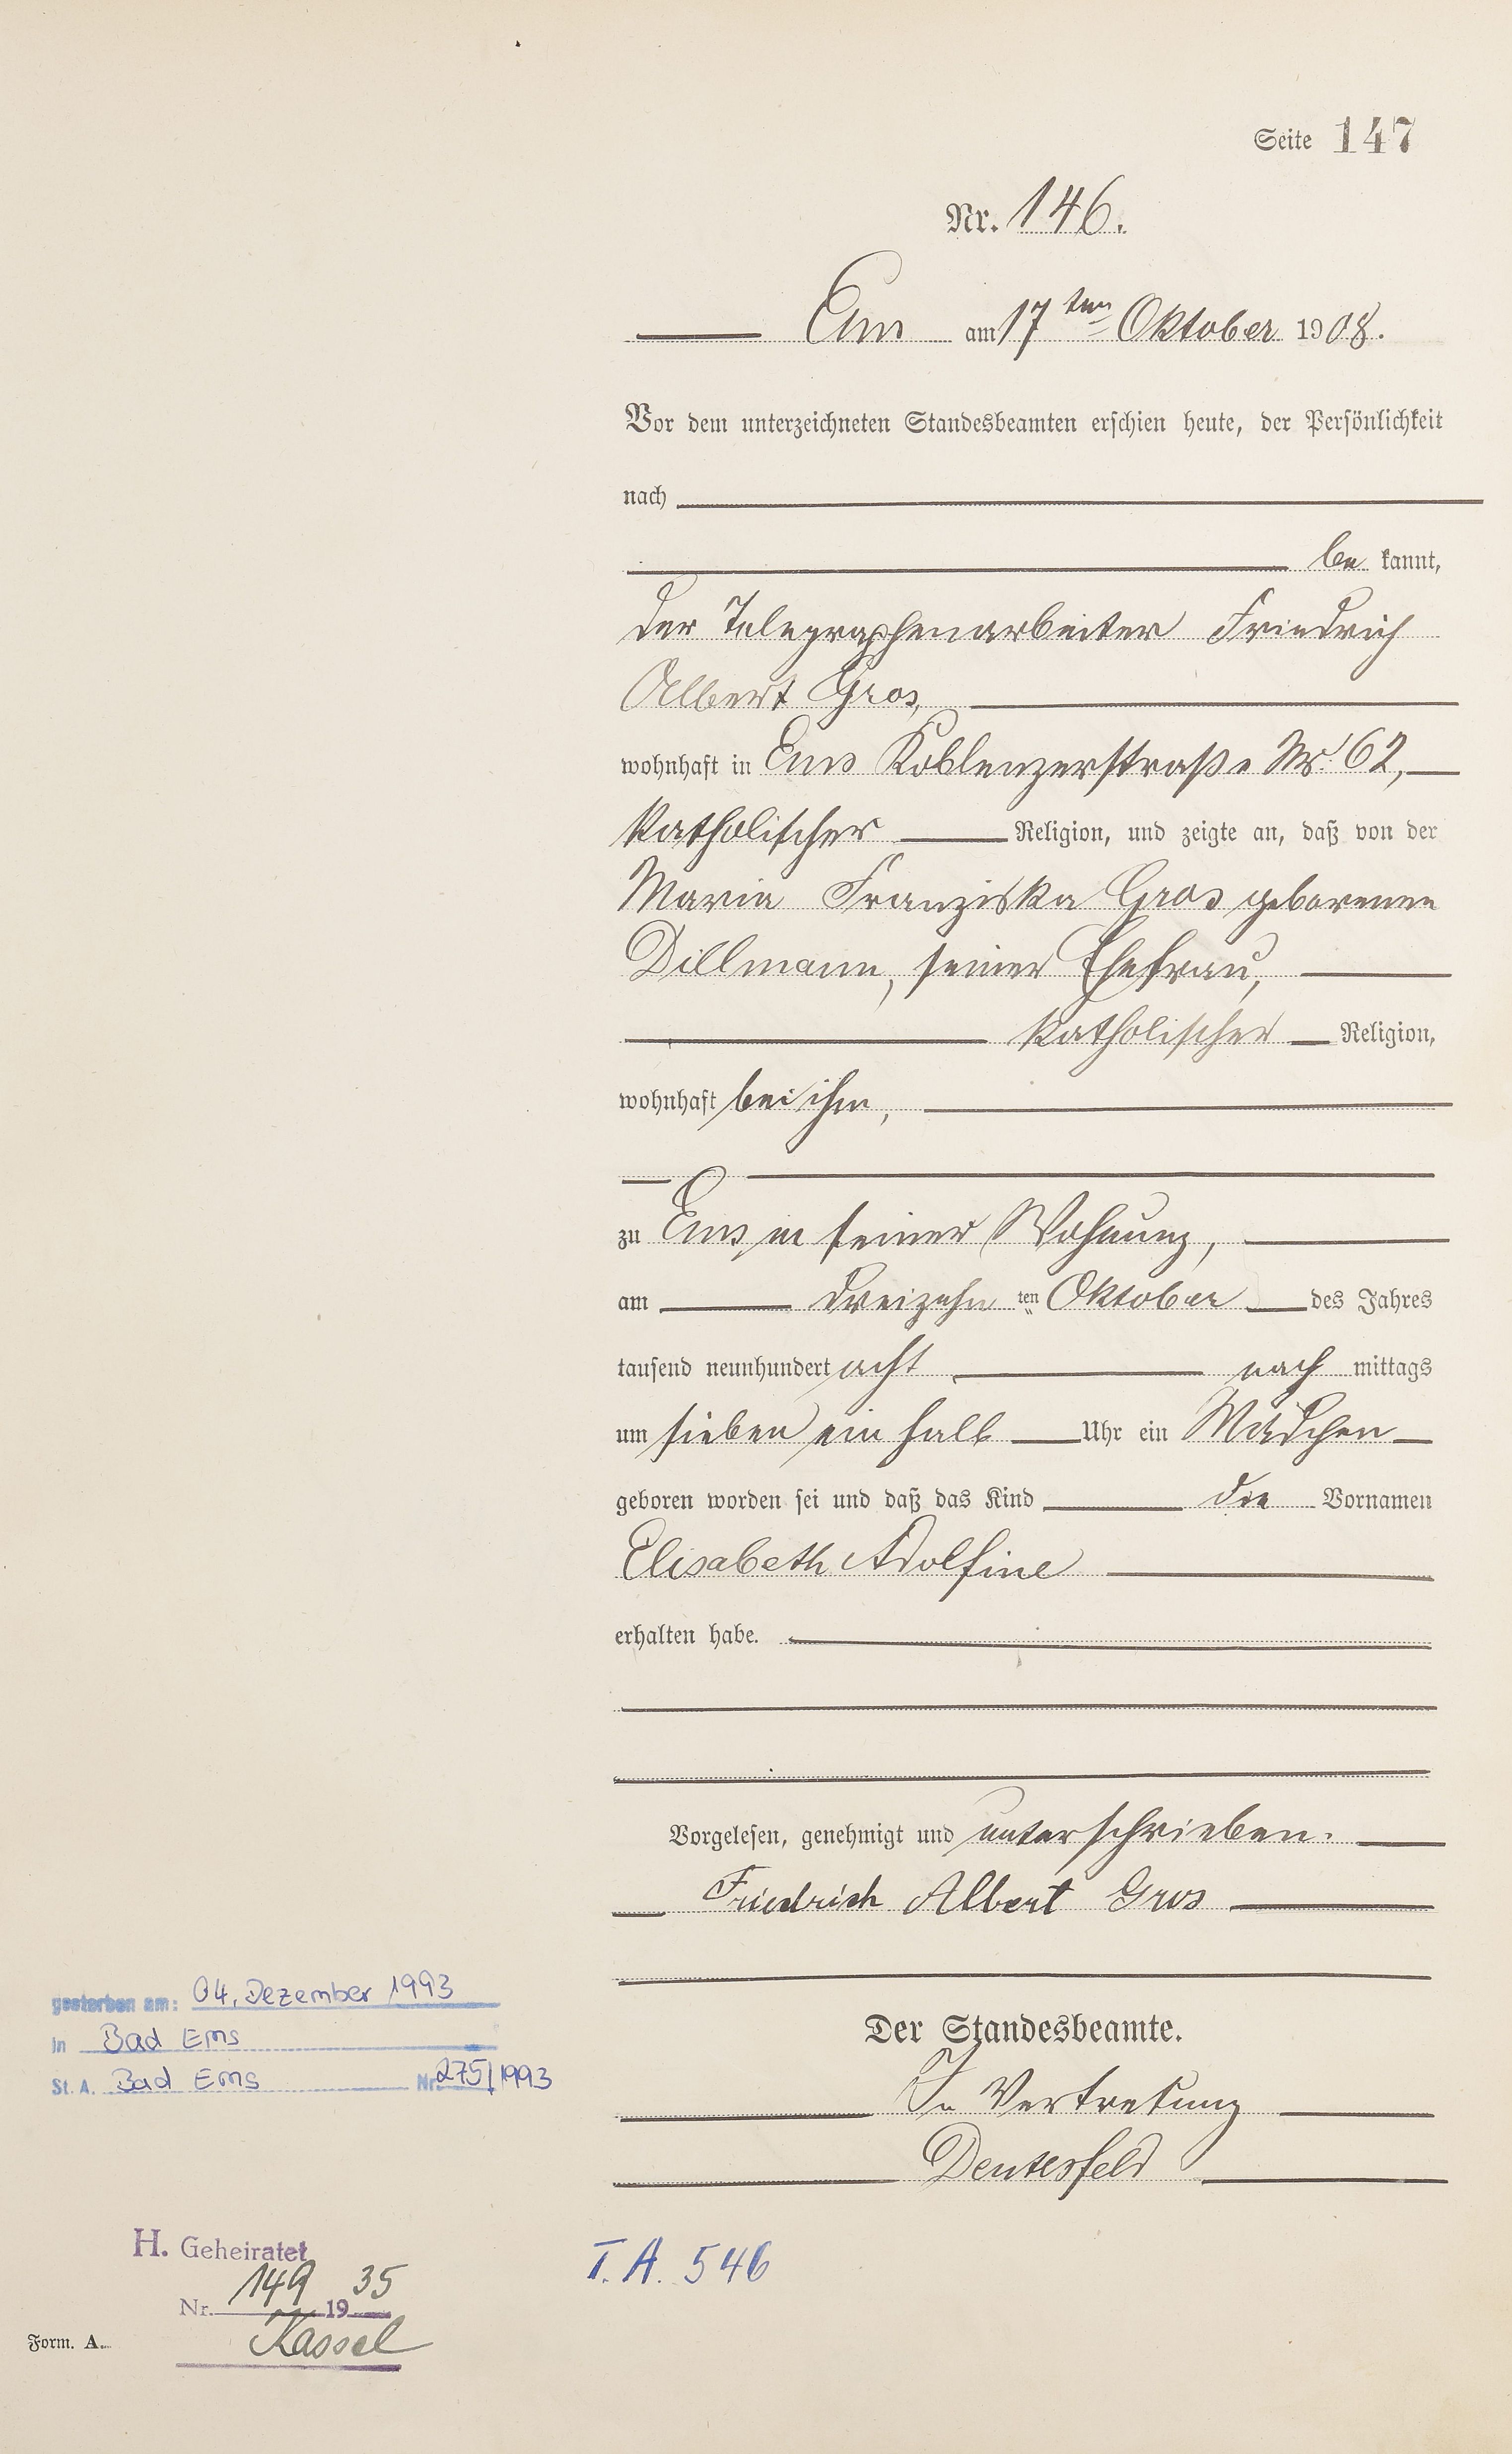 Seite 147
Nr. 146.
Ems am 17ten Oktober 1908.
Vor dem unterzeichneten Standesbeamten erschien heute, der Persönlichkeit
nach
be kannt,
der Telegraphenarbeiter Friedrich
Albert Gros,
wohnhaft in Ems Koblenzerstraße Nr. 62,
katholischer Religion, und zeigte an, daß von der
Maria Franziska Gros geborenen
Dillmann, seiner Ehefrau,
katholischer Religion,
wohnhaft bei ihm,
zu Ems in seiner Wohnung,
am dreizehn ten Oktober des Jahres
tausend neunhundert acht nach mittags
um sieben ein halb Uhr ein Mädchen
geboren worden sei und daß das Kind die Vornamen
Elisabeth Adolfine
erhalten habe.
Vorgelesen, genehmigt und unterschrieben.
Friedrich Albert Gros
Der Standesbeamte.
In Vertretung
gestorben am: 04. Dezember 1993
in Bad Ems
St. A. Bad Ems Nr. 275/1993
H. Geheiratet
Nr. 149 1935
Kassel
T.A. 546
Form. A.